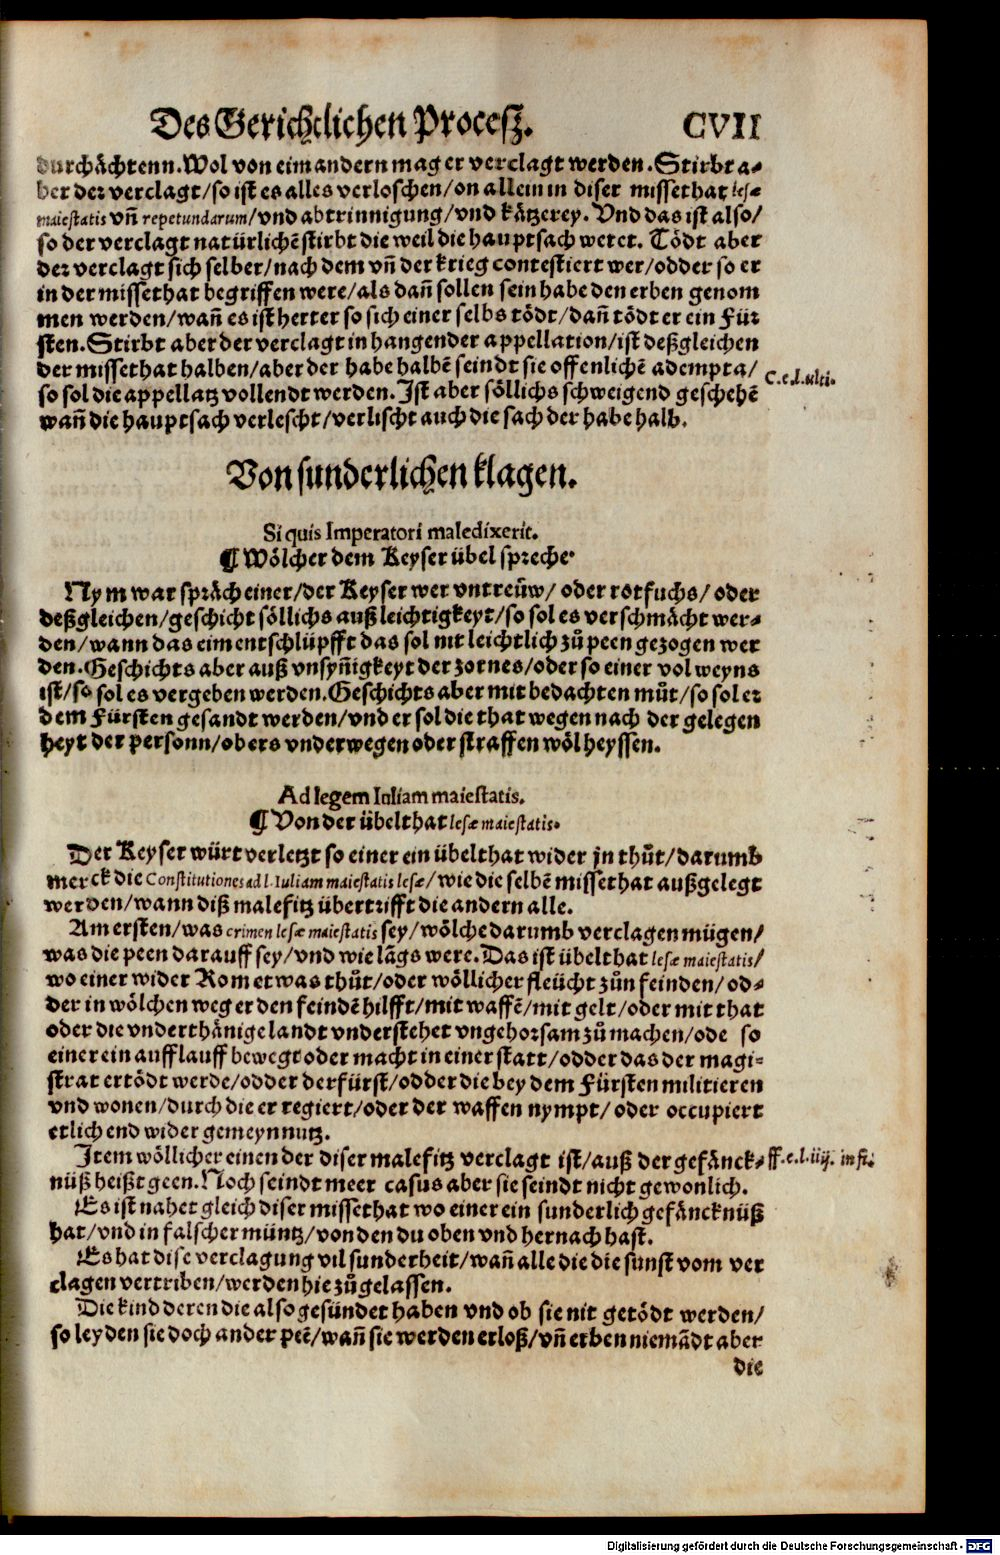 Des Gerichtlichen Procesz. CVII
durchächtenn. Wol von eim andern mag er verclagt werden. Stirbt a-
ber der verclagt/so ist es alles verloschen/on allein in diser missethat lesæ
maiestatis vñ repetundarum/vnd abtrinnigung/vnd kätzerey. Vnd das ist also/
so der verclagt natürlichẽ stirbt die weil die hauptsach weret. Tödt aber
der verclagt sich selber/nach dem vñ der krieg contestiert wer/odder so er
in der missethat begriffen were/als dañ sollen sein habe den erben genom
men werden/wañ es ist herter so sich einer selbs tödt/dañ tödt er ein Für
sten. Stirbt aber der verclagt in hangender appellation/ist deßgleichen
der missethat halben/aber der habe halbẽ seindt sie offenlichẽ adempta/
C.e.l.ulti.
so sol die appellatz vollendt werden. Ist aber söllichs schweigend geschehẽ
wañ die hauptsach verlescht/verlischt auch die sach der habe halb.
Von sunderlichen klagen.
Si quis Imperatori maledixerit.
¶ Wölcher dem Keyser übel spreche.
Nym war spräch einer/der Keyser wer vntreüw/ oder rotfuchs/ oder
deßgleichen/geschicht söllichs auß leichtigkeyt/so sol es verschmächt wer-
den/wann das eim entschlüpfft das sol nit leichtlich zů peen gezogen wer
den. Geschichts aber auß vnsyñigkeyt der zornes/oder so einer vol weyns
ist/so sol es vergeben werden. Geschichts aber mit bedachten můt/so sol er
dem Fürsten gesandt werden/vnd er sol die that wegen nach der gelegen
heyt der personn/obers vnderwegen oder straffen wöl heyssen.
Ad legem Iuliam maiestatis.
¶ Von der übelthat lesæ maiestatis.
Der Keyser würt verletzt so einer ein übelthat wider jn thůt/darumb
merck die Constitutiones ad l. Iuliam maiestatis lesæ/wie die selbẽ missethat außgelegt
werden/wann diß malefitz übertrifft die andern alle.
Am ersten/was crimen lesæ maiestatis sey/wölche darumb verclagen mügen/
was die peen darauff sey/vnd wie lãgs were. Das ist übelthat lesæ maiestatis/
wo einer wider Rom etwas thůt/oder wöllicher fleücht zůn feinden/od-
der in wölchen weg er den feindẽ hilfft/mit waffẽ/mit gelt/oder mit that
oder die vnderthänige landt vnderstehet vngehorsam zů machen/ode so
einer ein aufflauff bewegt oder macht in einer statt/odder das der magi-
strat ertödt werde/odder der fürst/odder die bey dem Fürsten militieren
vnd wonen/durch die er regiert/oder der waffen nympt/ oder occupiert
etlich end wider gemeyn nutz.
Item wöllicher einen der diser malefitz verclagt ist/auß der gefänck- ff.e.l.iiij. in fi.
nüß heißt geen. Noch seindt meer casus aber sie seindt nicht gewonlich.
Es ist nahet gleich diser missethat wo einer ein sunderlich gefäncknüß
hat/vnd in falscher müntz/von den du oben vnd hernach hast.
Es hat dise verclagung vil sunderheit/wañ alle die die sunst vom ver
clagen vertriben/werden hie zů gelassen.
Die kind deren die also gesündet haben vnd ob sie nit getödt werden/
so leyden sie doch ander peẽ/wañ sie werden erloß/vñ erben niemãdt aber
die
Digitalisierung gefördert durch die Deutsche Forschungsgemeinschaft - DFG